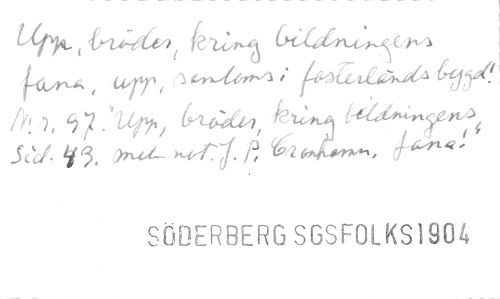 Upp, bröder, kring bildningens
fana, upp, samloms i fosterlands bygd!
N:r. 97. "Upp, bröder, kring bildningens
Sid. 43. mel. not. J. P. Cronhamn. fana!"
SÖDERBERG SGSFOLKS1904